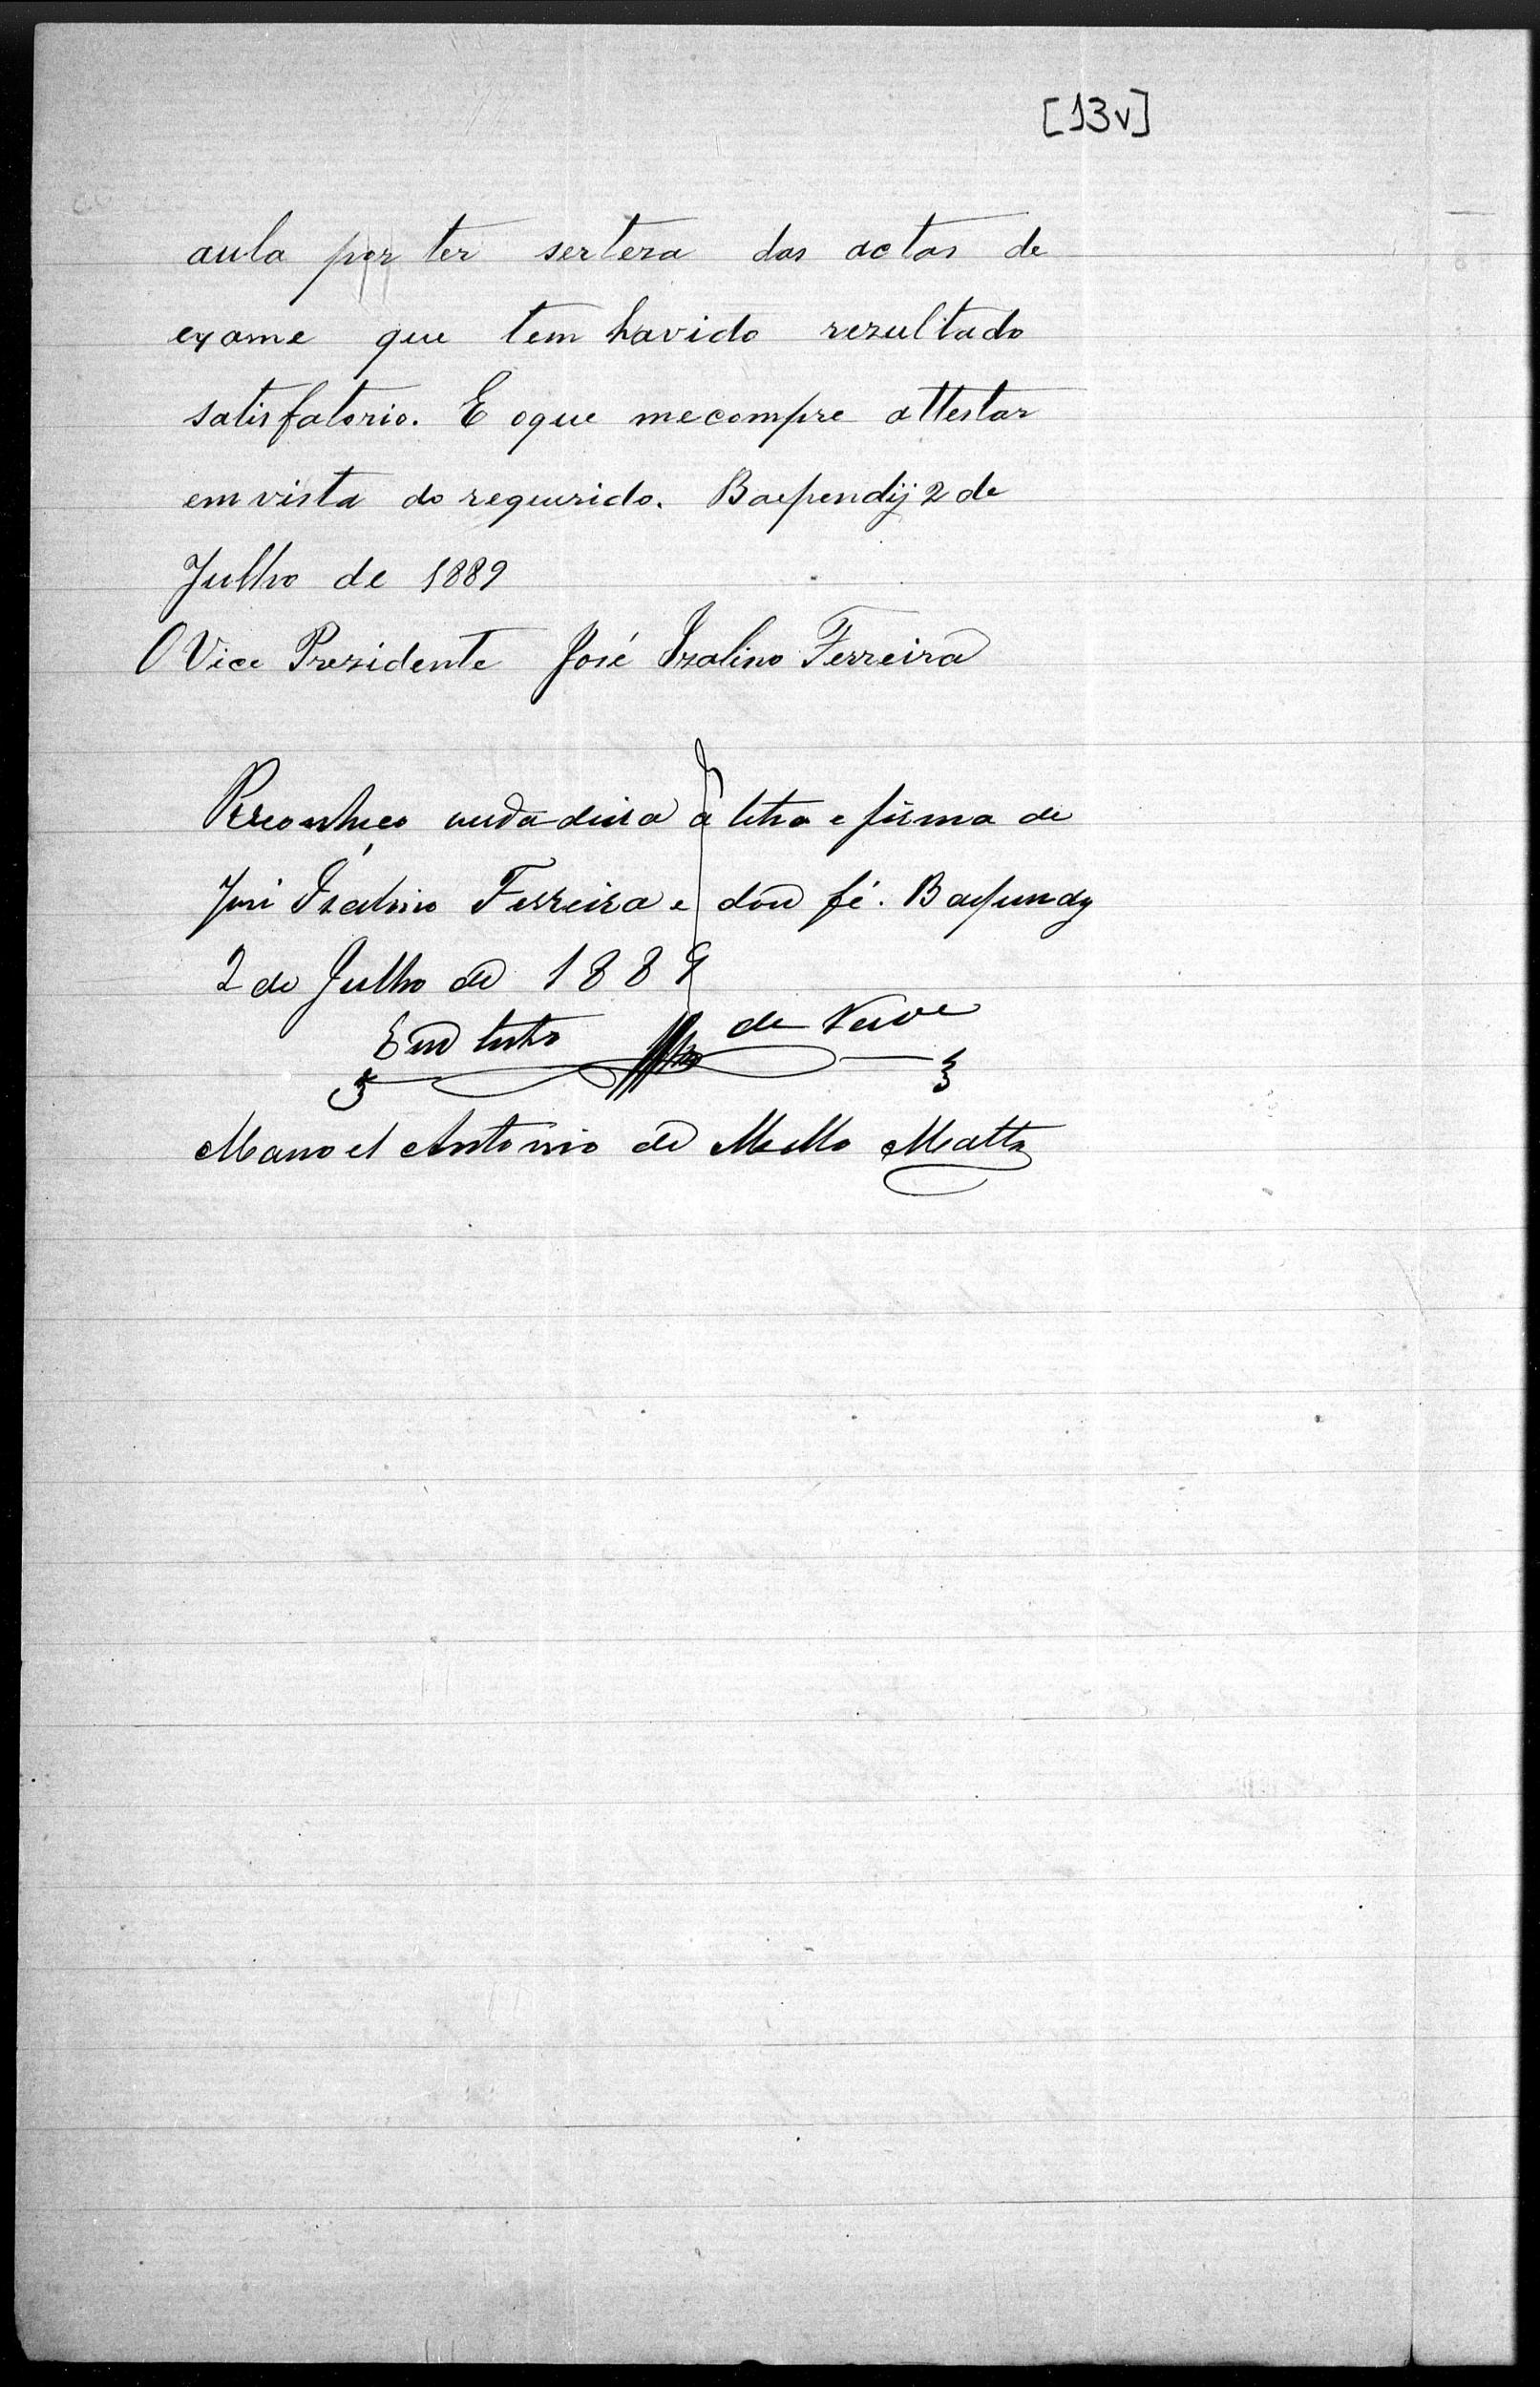 [13v]
aula por ter serteza das actas de
exame que tem havido rezultado
satisfatorio. E oque mecompre attestar
em vista do requerido. Baependÿ 2 de
Julho de 1889
O Vice Prezidente José Izalino Ferreira
Reconheço verdadeira a letra e firma de
José Izalino Ferreira e dou fé. Baependy
2 de Julho de 1889
Em testo de Verde
Manoel Antonio de Mello Matta